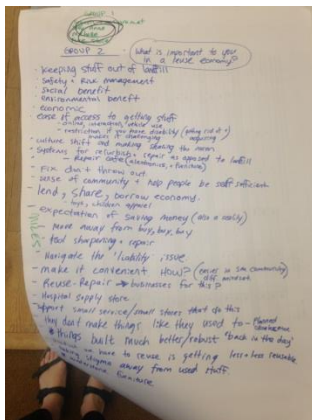 GROUP 1
GROUP 2
What is important to you
in a reuse economy?
- keeping stuff out of landfill
- safety + risk management
- social benefit
- environmental benefit
- economic
- ease of access to getting stuff
- restriction if you have disability
makes it challenging
- culture shift and making sharing the norm
- systems for refurbish + repair as opposed to landfill
- Repair cafe (electronics, furniture)
- Fix don't throw out
- sense of community + help people be self sufficient
- lend, share, borrow economy.
- toys, children apparel
- expectation of saving money (also a reality)
- move away from buy, buy, buy
- tool sharpening + repair
- Navigate the 'liability' issue
- make it convenient HOW?
- Reuse-Repair businesses for this?
- Hospital supply store
- support small service/small stores that do this
- they don't make things like they used to - Planned
obsolescence
* things built much better/robust "back in the day"
we have to reuse is getting less + less reusable
stigma away from used stuff.
furniture